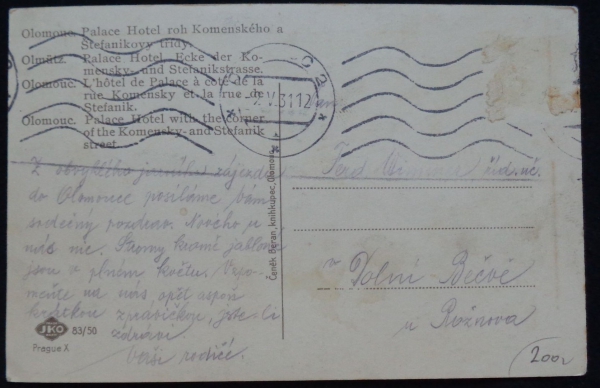 Olomouc. Palace Hotel roh Komenského a
Štefanikovy třídy.
Olmütz. Palace Hotel, Ecke der Ko-
mensky- und Stefanikstrasse.
Olomouc. L'hôtel de Palace à coté de la
rue Komensky et la rue de
Stefanik.
Olomouc. Palace Hotel with the corner
of the Komensky- and Stefanik
street
2.V.31.12
Čeněk Beran, knihkupec, Olomouc
Z obvyklého jarního zájezdu
do Olomouce posíláme vám
srdečný pozdrav. Nového u
nás nic. Stromy kromě jabloní
jsou v plném květu. Vzpo-
meňte na nás opět aspoň
krátkou zprávičkou, jste-li
zdrávi.
Vaši rodiče.
Ferd. říd. uč.
v Dolní Bečvě
u Rožnova
JKO
83/50
Prague X
200,-